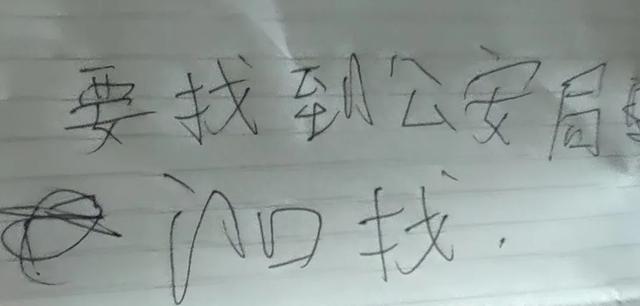 要找到公安局
门口找.